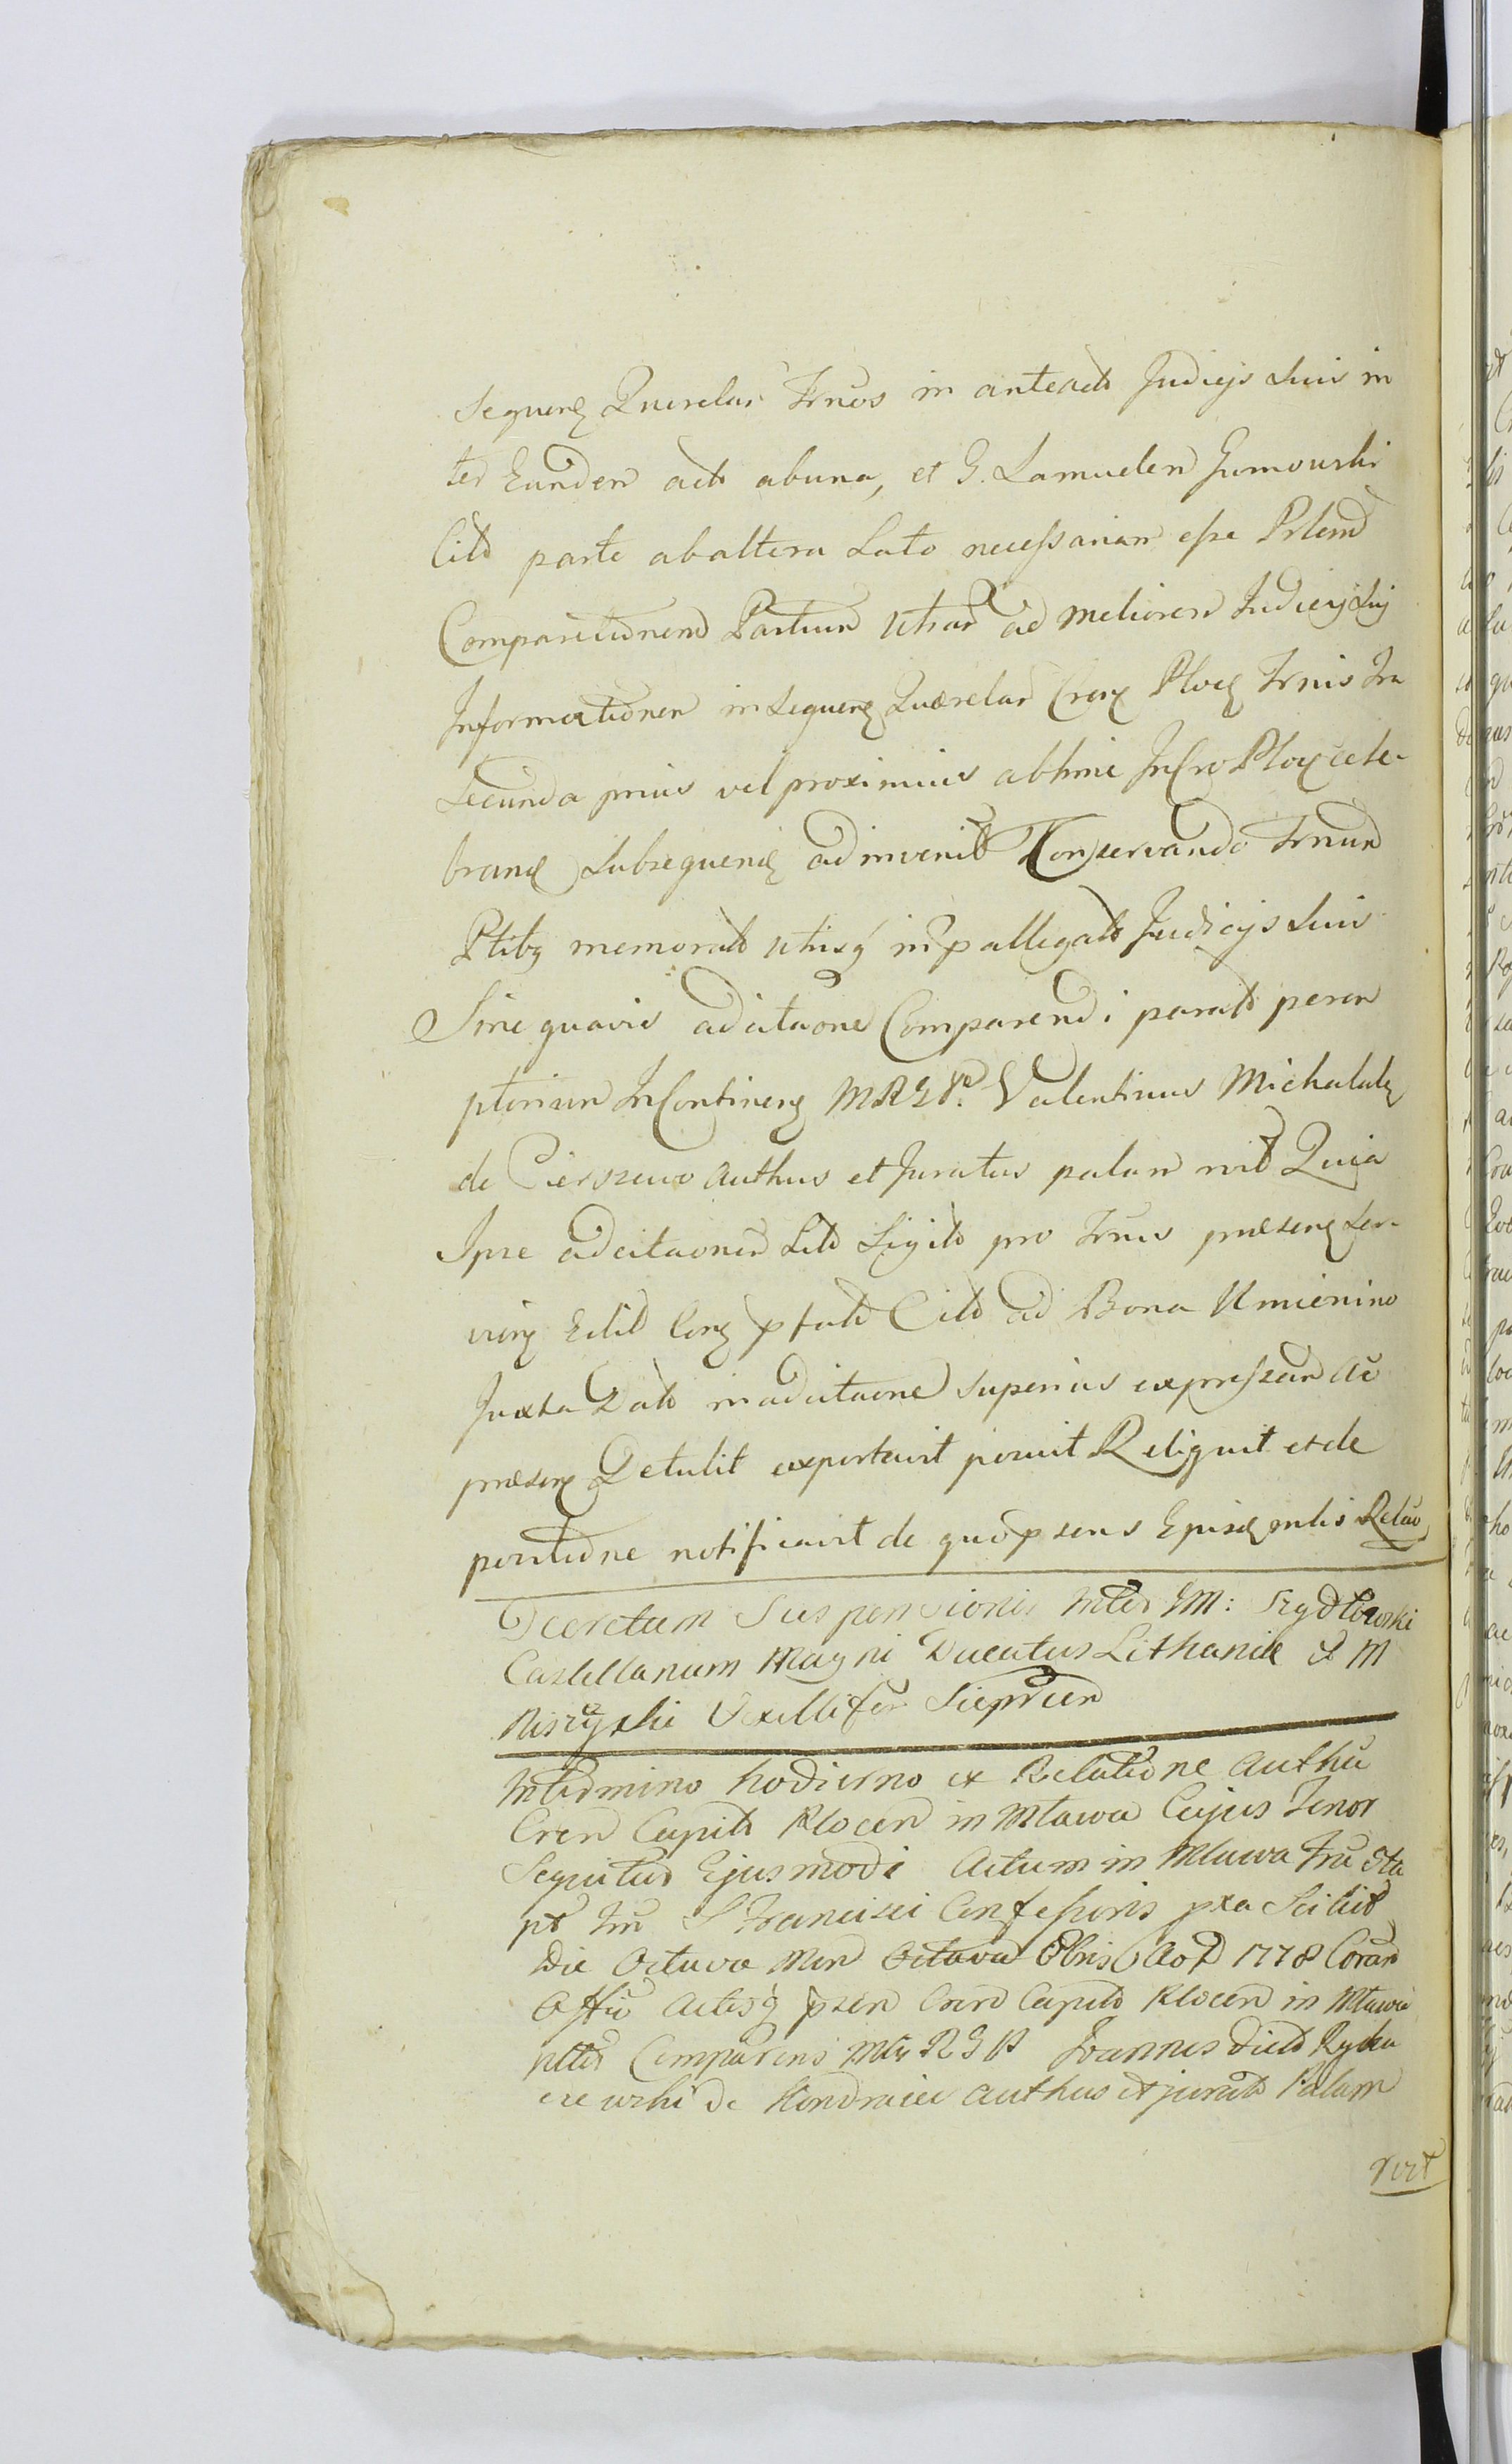 Sequen Querelar Trnos in anteact Judicijs suis in
ter Eundem act abuna, et G. Samuelem Gumowski
Citt parte ab altera Lato necessariam esse Prlem
Comparitionem Partium Utrar ad meliorem Judicij sui
Informationem in sequen Querelar Cren Ploc Trnis Tra
Secunda prius vel proximius abhinc In Cro Ploc cele-
bran subsequen adinvenit Conservando Trnum
Ptibq memorat utrisq in p allegat Judicijs suis
Sine quavis adcitaone Comparendi parat perem
ptorium In Continen M R G P. Valentinus Michalak
de Cierszewo Authus et Juratus palam rvit Quia
Ipse adcitaonem Litt Sigilt pro Trnis præsen ser-
vien Edit Con p fatt Citt ad Bona Umienino
Juxta Datt in adcitaone superius expressam ac
præsen Detulit exportavit posuit Reliquit et de
positione notificavit de quo p sens Epis ntis Relao
Decretum Suspensionis Inter GM: Szydłowski
Castellanum Magni Ducatus Lithaniæ et M
Niszczyski Vexillifer Sieprcen
In termino hodierno ex Relatione Authu
Cren Capitt Plocen in Mława Cujus Tenor
Sequitur Ejusmodi Actum in Mlawa Fria 5ta
pt Fm S Francisci Confessoris pxa Scilict
Die Octava Men Octava 8bris AoD 1778 Coram
Offio Actisq p sen Cren Capitt Plocen in Mława
nlter Comparens Mtr R G P Joannes Dictt Rycha
cewski de Kondraiec authus et jurat Palam
rvit